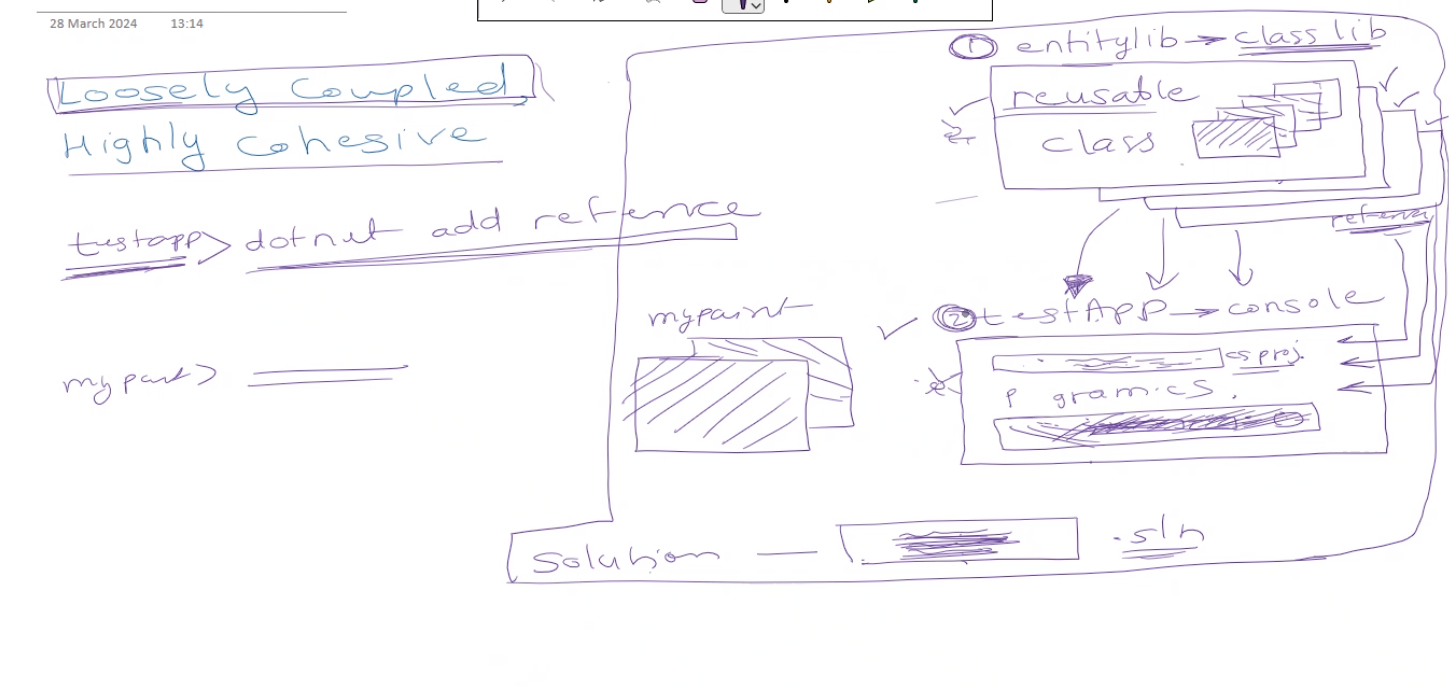 28 March 2024 13:14
Loosely Coupled,
Highly Cohesive
testapp> dotnet add refence
mypaint> 
① entitylib → class lib
reusable
class
mypaint
② testApp → console
csproj.
P gram.cs.
Solution — .sln